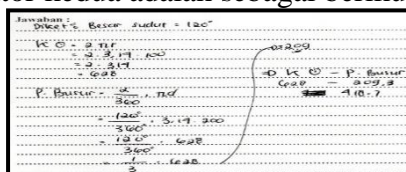 tor kedua adalah sebagai berik
Jawaban :
Diket : Besar sudut = 120°
K O = 2 πr
= 2 . 3,14 . 100
= 2 . 314
= 628
P. Busur = α/360 . πd
= 120°/360° . 3,14 . 200
= 120°/360° . 628
= 1/3 . 628
= 209
K O - P. Busur
628 - 209,3
418,7